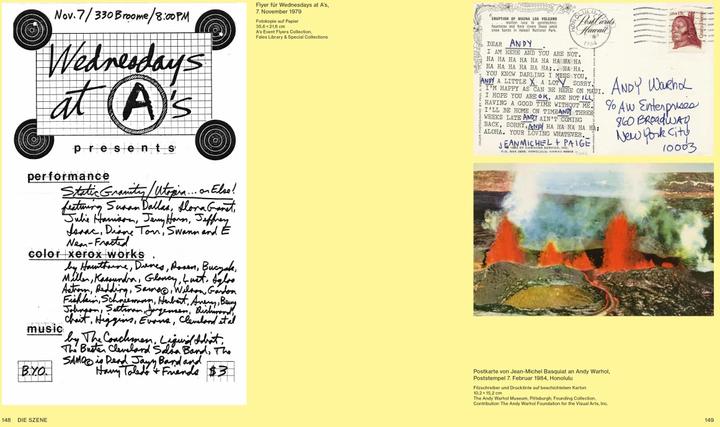 Nov. 7 / 330 Broome / 8:00PM
Wednesdays
at A's
presents
performance
Static Gravity / Utopia... or Else!
featuring Susan Dallas, Ilona Granet,
Julie Harrison, Jerry Horn, Jeffrey
Isaac, Diane Torr, Swann and E
Near-Fracted
color xerox works
by Hawthorne, Dienes, Rosen, Buczak,
Miller, Kasoundra, Glowey, Lust, Igloo
Astrom, Redding, Samo©, Wilson, Gordon
Fishkin, Schneemann, Herbst, Avery, Bury
Johnson, Jorgensen, Richmond,
Chait, Higgins, Evans, Cleveland et al
music
by The Coachmen, Liquid Idiot,
The Better Cleveland Salsa Band, The
SAMO© is Dead Jazz Band and
Harry Toledo & Friends
B.Y.O.
$3
148 DIE SZENE
Flyer für Wednesdays at A's,
7. November 1979
Fotokopie auf Papier
35,6 × 21,6 cm
A's Event Flyers Collection,
Fales Library & Special Collections
ERUPTION OF MAUNA LOA VOLCANO
Post Cards
Hawaii
1984
DEAR ANDY
I AM HERE AND YOU ARE NOT.
HA HA HA HA HA HA HA HA HA
HA HA HA HA HA HA... HA HA.
YOU KNOW DARLING I MISS YOU,
ANDY A LITTLE X A LOT SORRY.
I'M HAPPY AS CAN BE HERE ON MAUI.
I HOPE YOU ARE OK, ARE NOT ILL
HAVING A GOOD TIME WITHOUT ME.
I'LL BE HOME ON TIME ANDY THREE
WEEKS LATE ANDY AIN'T COMING
BACK, SORRY, ANDY HA HA HA HA HA;
ALOHA, YOUR LOVING WHATEVER.
JEANMICHEL + PAIGE
ANDY WARHOL
% AW Enterprises
860 BROADWAY
New York City
10003
Postkarte von Jean-Michel Basquiat an Andy Warhol,
Poststempel 7. Februar 1984, Honolulu
Filzschreiber und Drucktinte auf beschichtetem Karton
10,2 × 15,2 cm
The Andy Warhol Museum, Pittsburgh, Founding Collection,
Contribution The Andy Warhol Foundation for the Visual Arts, Inc.
149